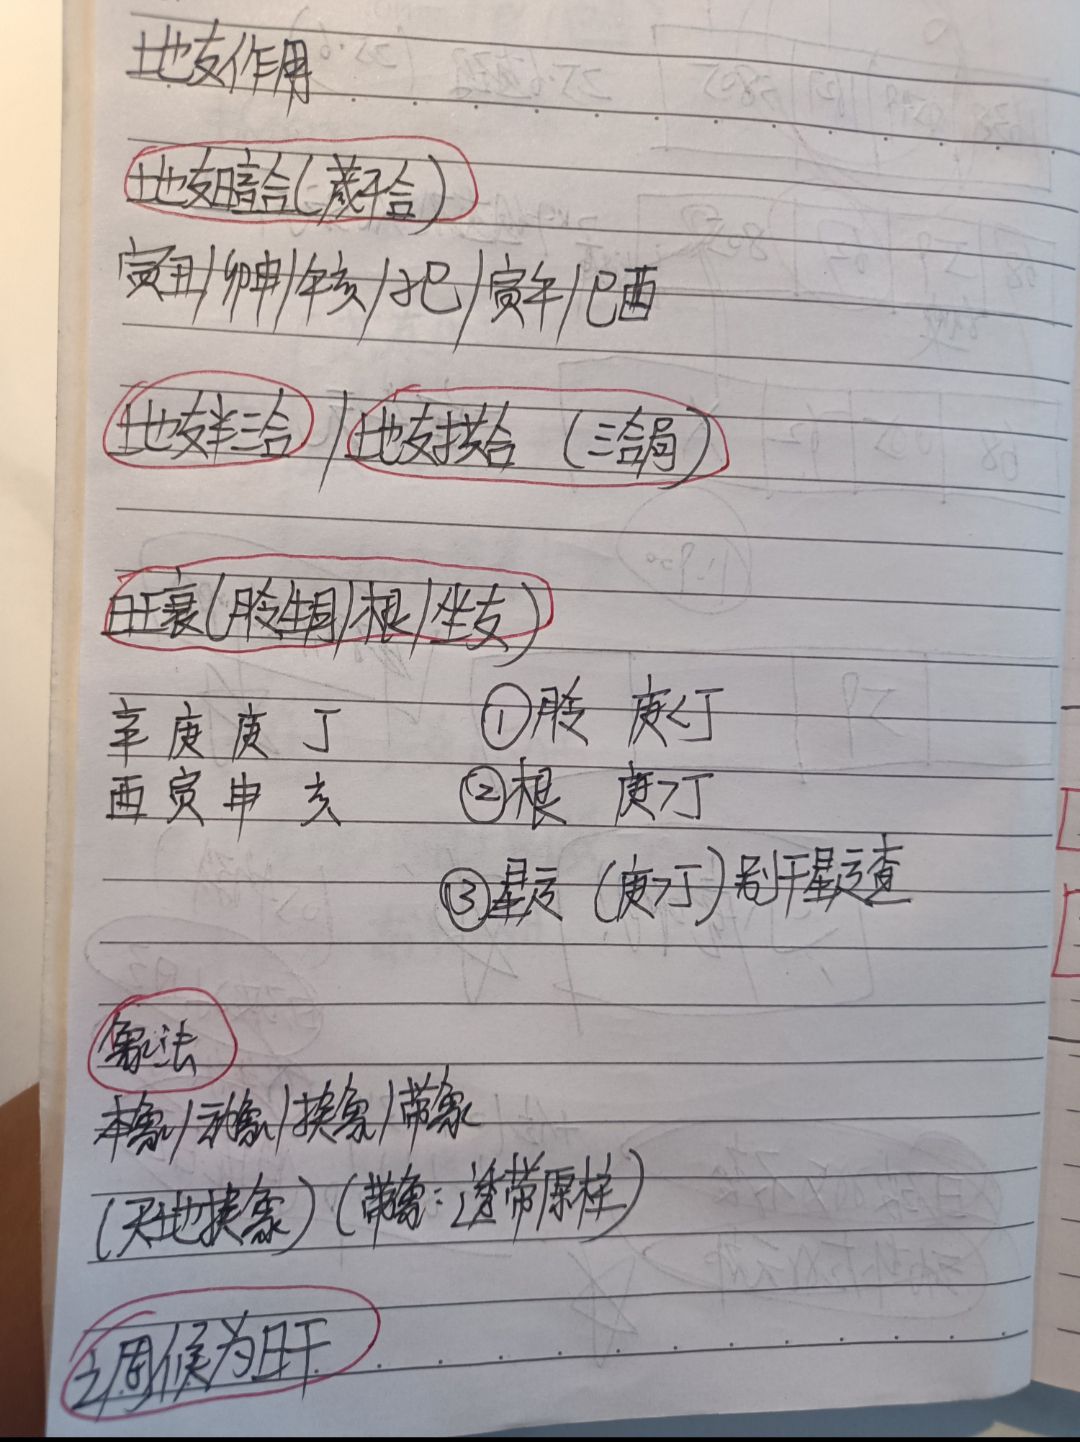 地支作用
地支暗合(藏干合)
寅丑/卯申/午亥/子巳/寅午/巳酉
地支半三合/地支拱合(三合局)
旺衰(月令生月/根/坐支)
辛庚庚丁 ①月令 庚<丁
酉寅申亥 ②根 庚>丁
③星运(庚>丁)看干星运查
象法
本象/动象/换象/带象
(天地换象)(带象:透带原柱)
调候为日干